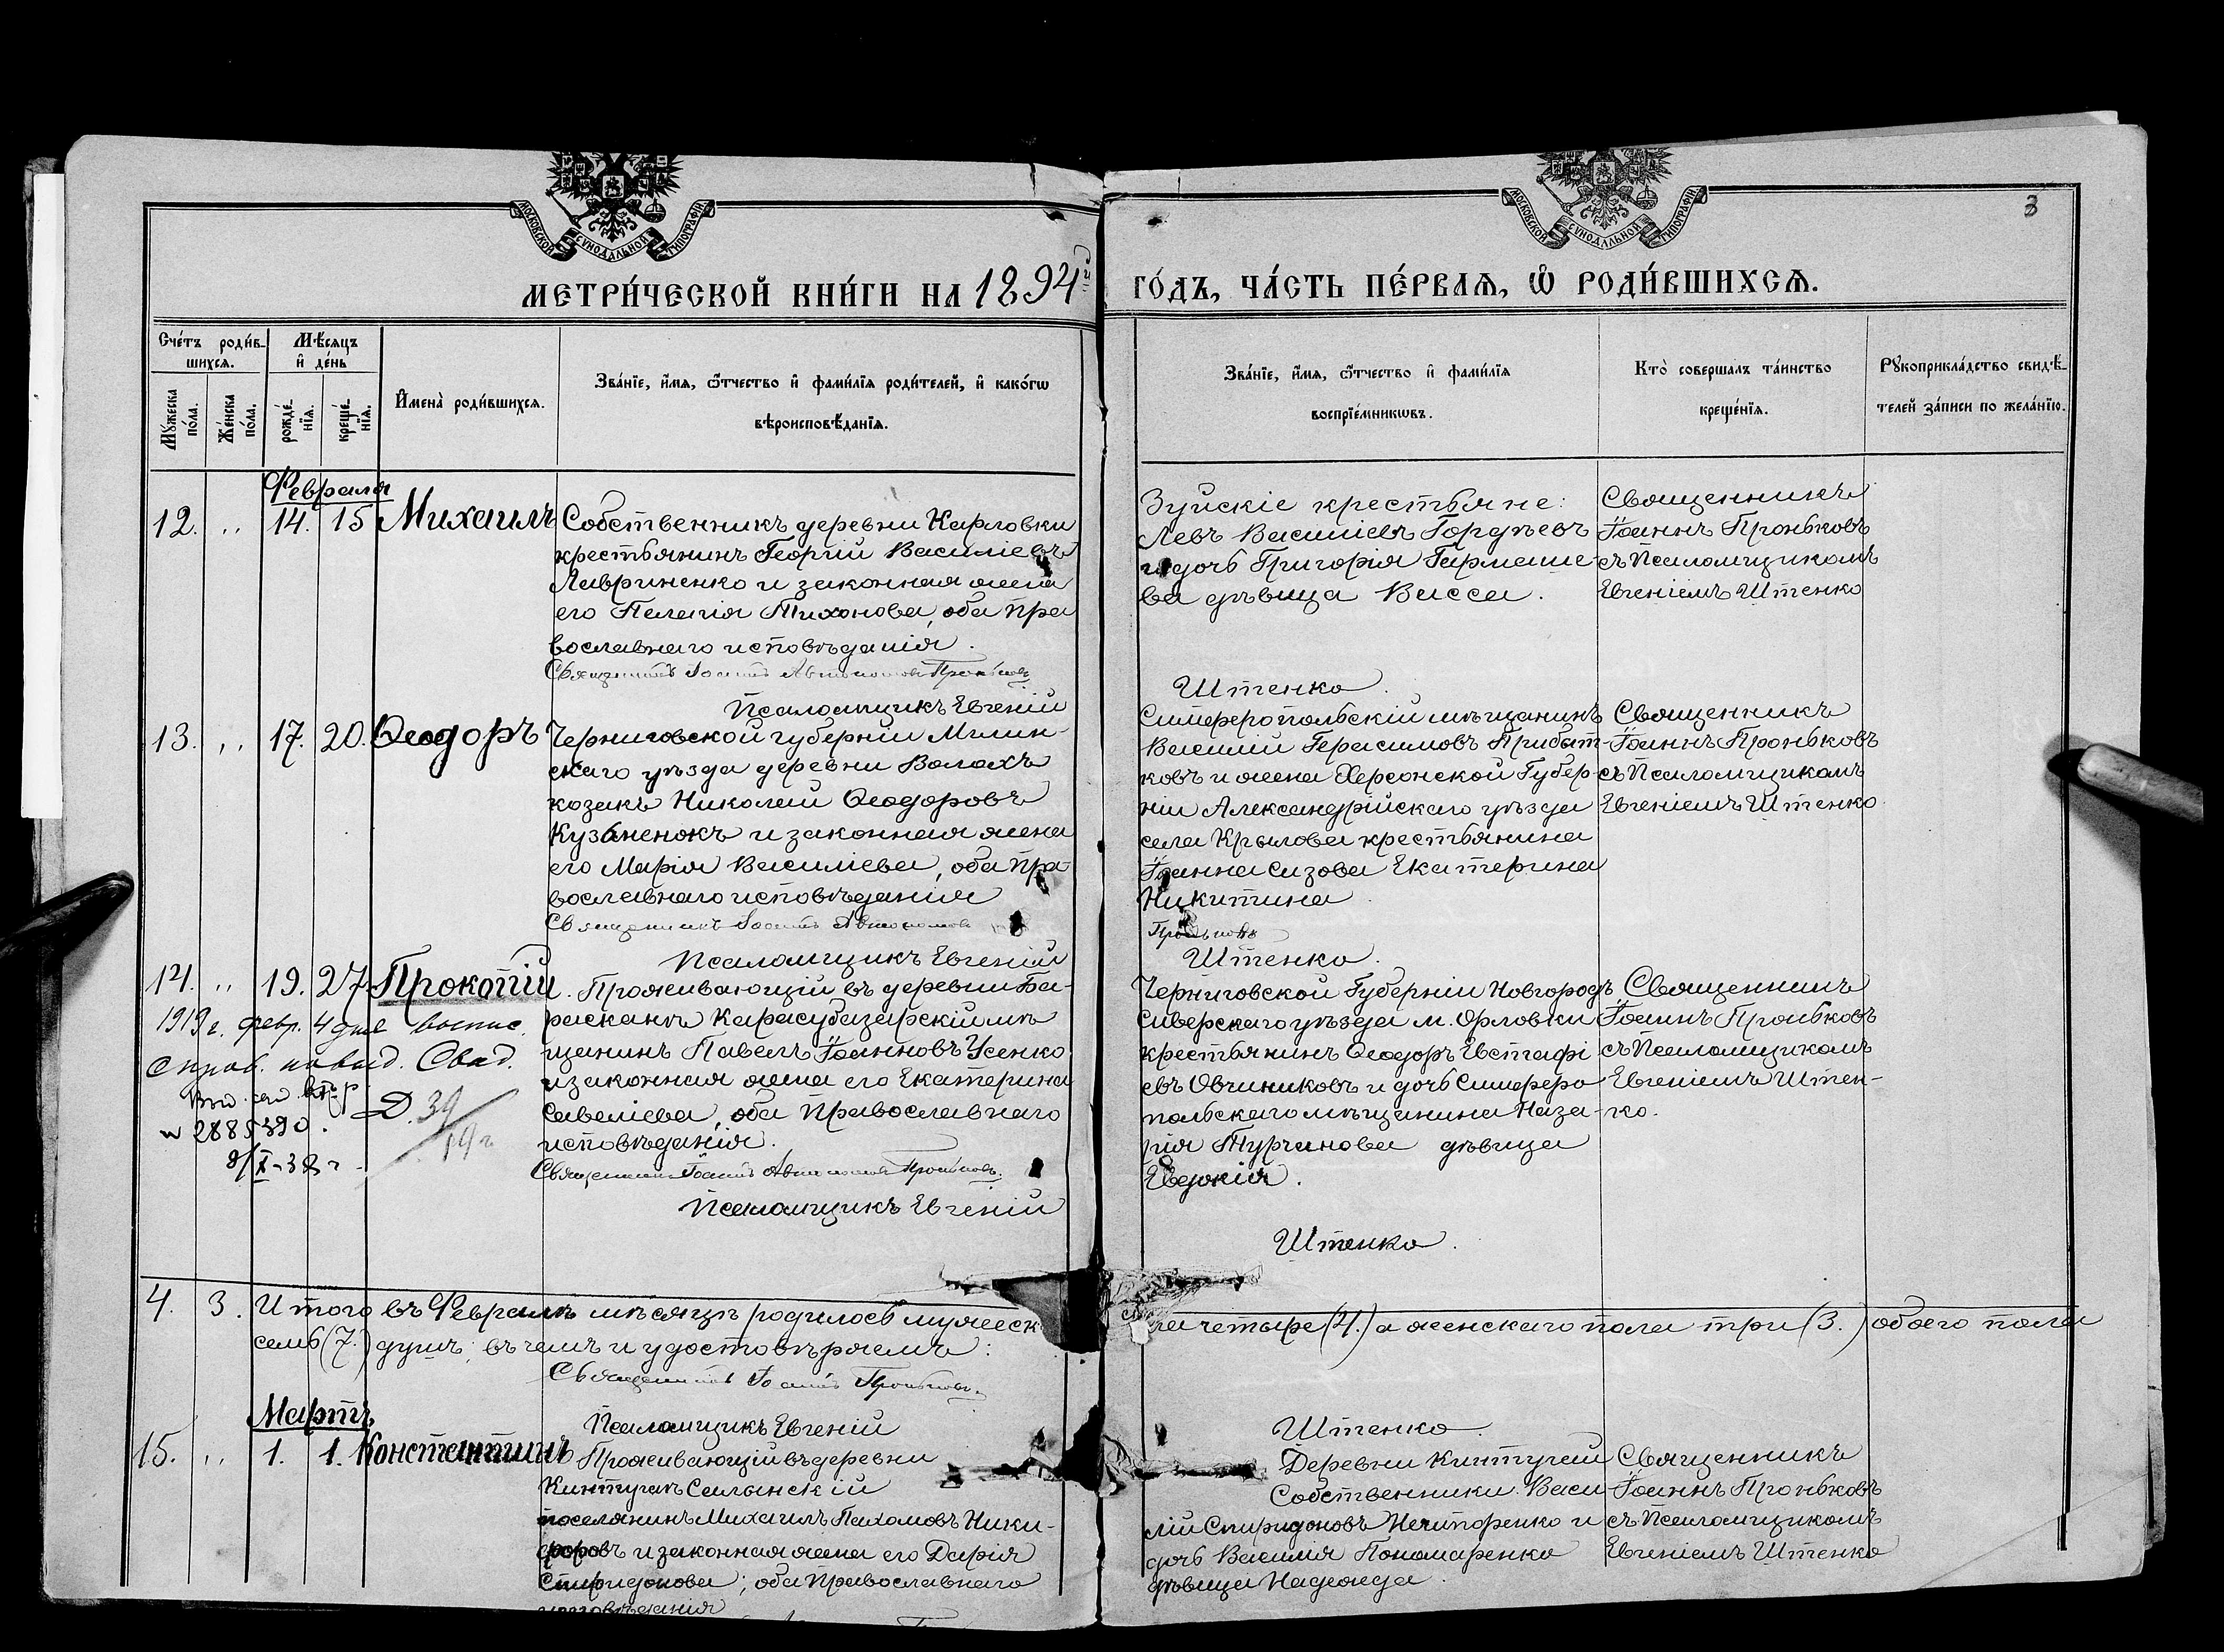 МОСКОВСКОЙ СУНОДАЛЬНОЙ ТИПОГРАФІИ
МОСКОВСКОЙ СУНОДАЛЬНОЙ ТИПОГРАФІИ
3
МЕТРИ́ЧЕСКОЙ КНИ́ГИ НА 1894й
ГО́ДЪ, ЧА́СТЬ ПЕ́РВАѦ, Ѡ҆ РОДИ́ВШИХСѦ.
Сче́тъ роди́в-
шихсѧ.
Мѣ́сѧцъ
и҆ де́нь
Мꙋ́жеска по́ла.
Же́нска по́ла.
рожде́-
нїѧ.
креще́-
нїѧ.
И҆мена̀ роди́вшихсѧ.
Зва́нїе, и҆́мѧ, ѻ҆́тчество и҆ фами́лїѧ роди́телей, и҆ како́гѡ
вѣроисповѣ́данїѧ.
Зва́нїе, и҆́мѧ, ѻ҆́тчество и҆ фами́лїѧ
воспрїе́мникѡвъ.
Кто̀ совершалъ та́инство
креще́нїѧ.
Рꙋкоприкла́дство свидѣ́-
телей за́писи по жела́нїю.
Февраля
12. ,, 14. 15 Михаилъ
Собственникъ деревни Карловки
крестьянинъ Георгій Василіевъ
Лавриненко и законная жена
его Пелагія Тихонова, оба пра
вославнаго исповѣданія.
Священникъ Іоаннъ Автономовъ Проньковъ
Псаломщикъ Евгеній
Зуйскіе крестьяне:
Левъ Василіевъ Гордѣевъ
и дочь Григорія Гармаше-
ва дѣвица Васса.
Штенко.
Священникъ
Іоаннъ Проньковъ
съ Псаломщикомъ
Евгеніемъ Штенко
13. ,, 17. 20. Ѳеодоръ
Черниговской губерніи Мглин-
скаго уѣзда деревни Волохъ
козакъ Николай Ѳеодоровъ
Кузьменокъ и законная жена
его Марія Василіева, оба пра-
вославнаго исповѣданія
Священникъ Іоаннъ Автономовъ
Псаломщикъ Евгеній
Симферопольскій мѣщанинъ
Василій Герасимовъ Прибыт-
ковъ и жена Херсонской Губер-
ніи Александрійскаго уѣзда
села Крылова крестьянина
Іоанна Сизова Екатерина
Никитина
Проньковъ
Штенко.
Священникъ
Іоаннъ Проньковъ
съ Псаломщикомъ
Евгеніемъ Штенко.
14. ,, 19. 27. Прокопій.
1919 г. февр. 4 дня
Д. 39
19 г
№ 2885390.
8/X-38 г.
Проживающій въ деревни Ба-
расханъ Карасубазарскій мѣ
щанинъ Павелъ Іоанновъ Усенко
и законная жена его Екатерина
Савеліева, оба Православнаго
исповѣданія.
Священникъ Іоаннъ Автономовъ Проньковъ.
Псаломщикъ Евгеній
Черниговской Губерніи Новгородъ
Сиверскаго уѣзда м. Орловки
крестьянинъ Ѳеодоръ Евстафі
евъ Овчинниковъ и дочь Симферо
польскаго мѣщанина Наза-
рія Турчинова дѣвица
Евдокія.
Штенко.
Священникъ
Іоаннъ Проньковъ
съ Псаломщикомъ
Евгеніемъ Штен-
ко.
4. 3. Итого въ Февралѣ мѣсяцѣ родилось мужеск
ла четыре (4.) а женскаго пола три (3.) обоего пола
семь (7.) душъ; въ чемъ и удостовѣряемъ:
Священникъ Іоаннъ Проньковъ.
Псаломщикъ Евгеній
Штенко.
Мартъ
15. ,, 1. 1. Константинъ
Проживающій въ деревни
Кинтугаѣ
поселянинъ Михаилъ Пахомовъ Ники-
форовъ и законная жена его Дарія
Спиридонова; оба Православнаго
исповѣданія
Деревни Кинтугай
Собственники: Васи
лій Спиридоновъ Нечипоренко и
дочь Василія Пономаренко
дѣвица Надежда.
Священникъ
Іоаннъ Проньковъ
съ Псаломщикомъ
Евгеніемъ Штенко